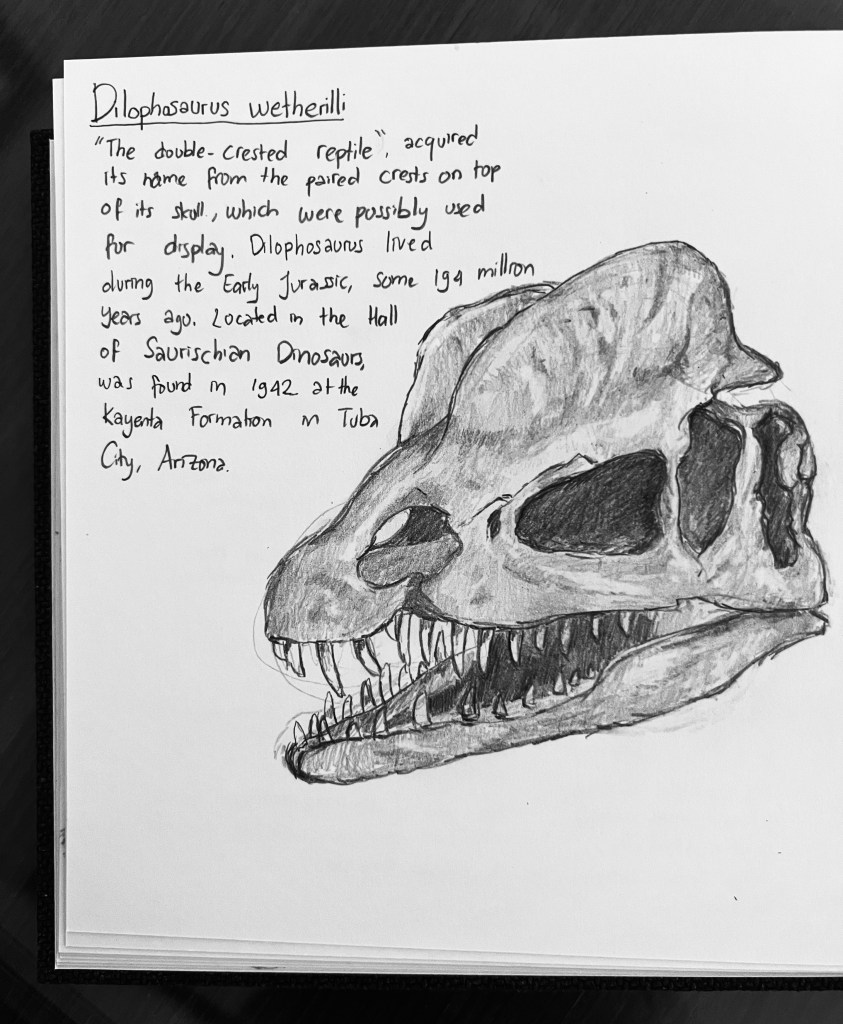 Dilophosaurus wetherilli
"The double-crested reptile", acquired
its name from the paired crests on top
of its skull, which were possibly used
for display. Dilophosaurus lived
during the Early Jurassic, some 194 million
years ago. Located in the Hall
of Saurischian Dinosaurs,
was found in 1942 at the
Kayenta Formation in Tuba
City, Arizona.